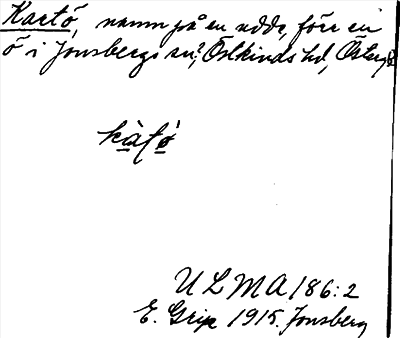 Kartö, namn på en udde, förr en
ö i Jonsbergs sn, Östkinds hd, Österg
kàtö
ULMA 186:2
E. Grip 1915. Jonsberg